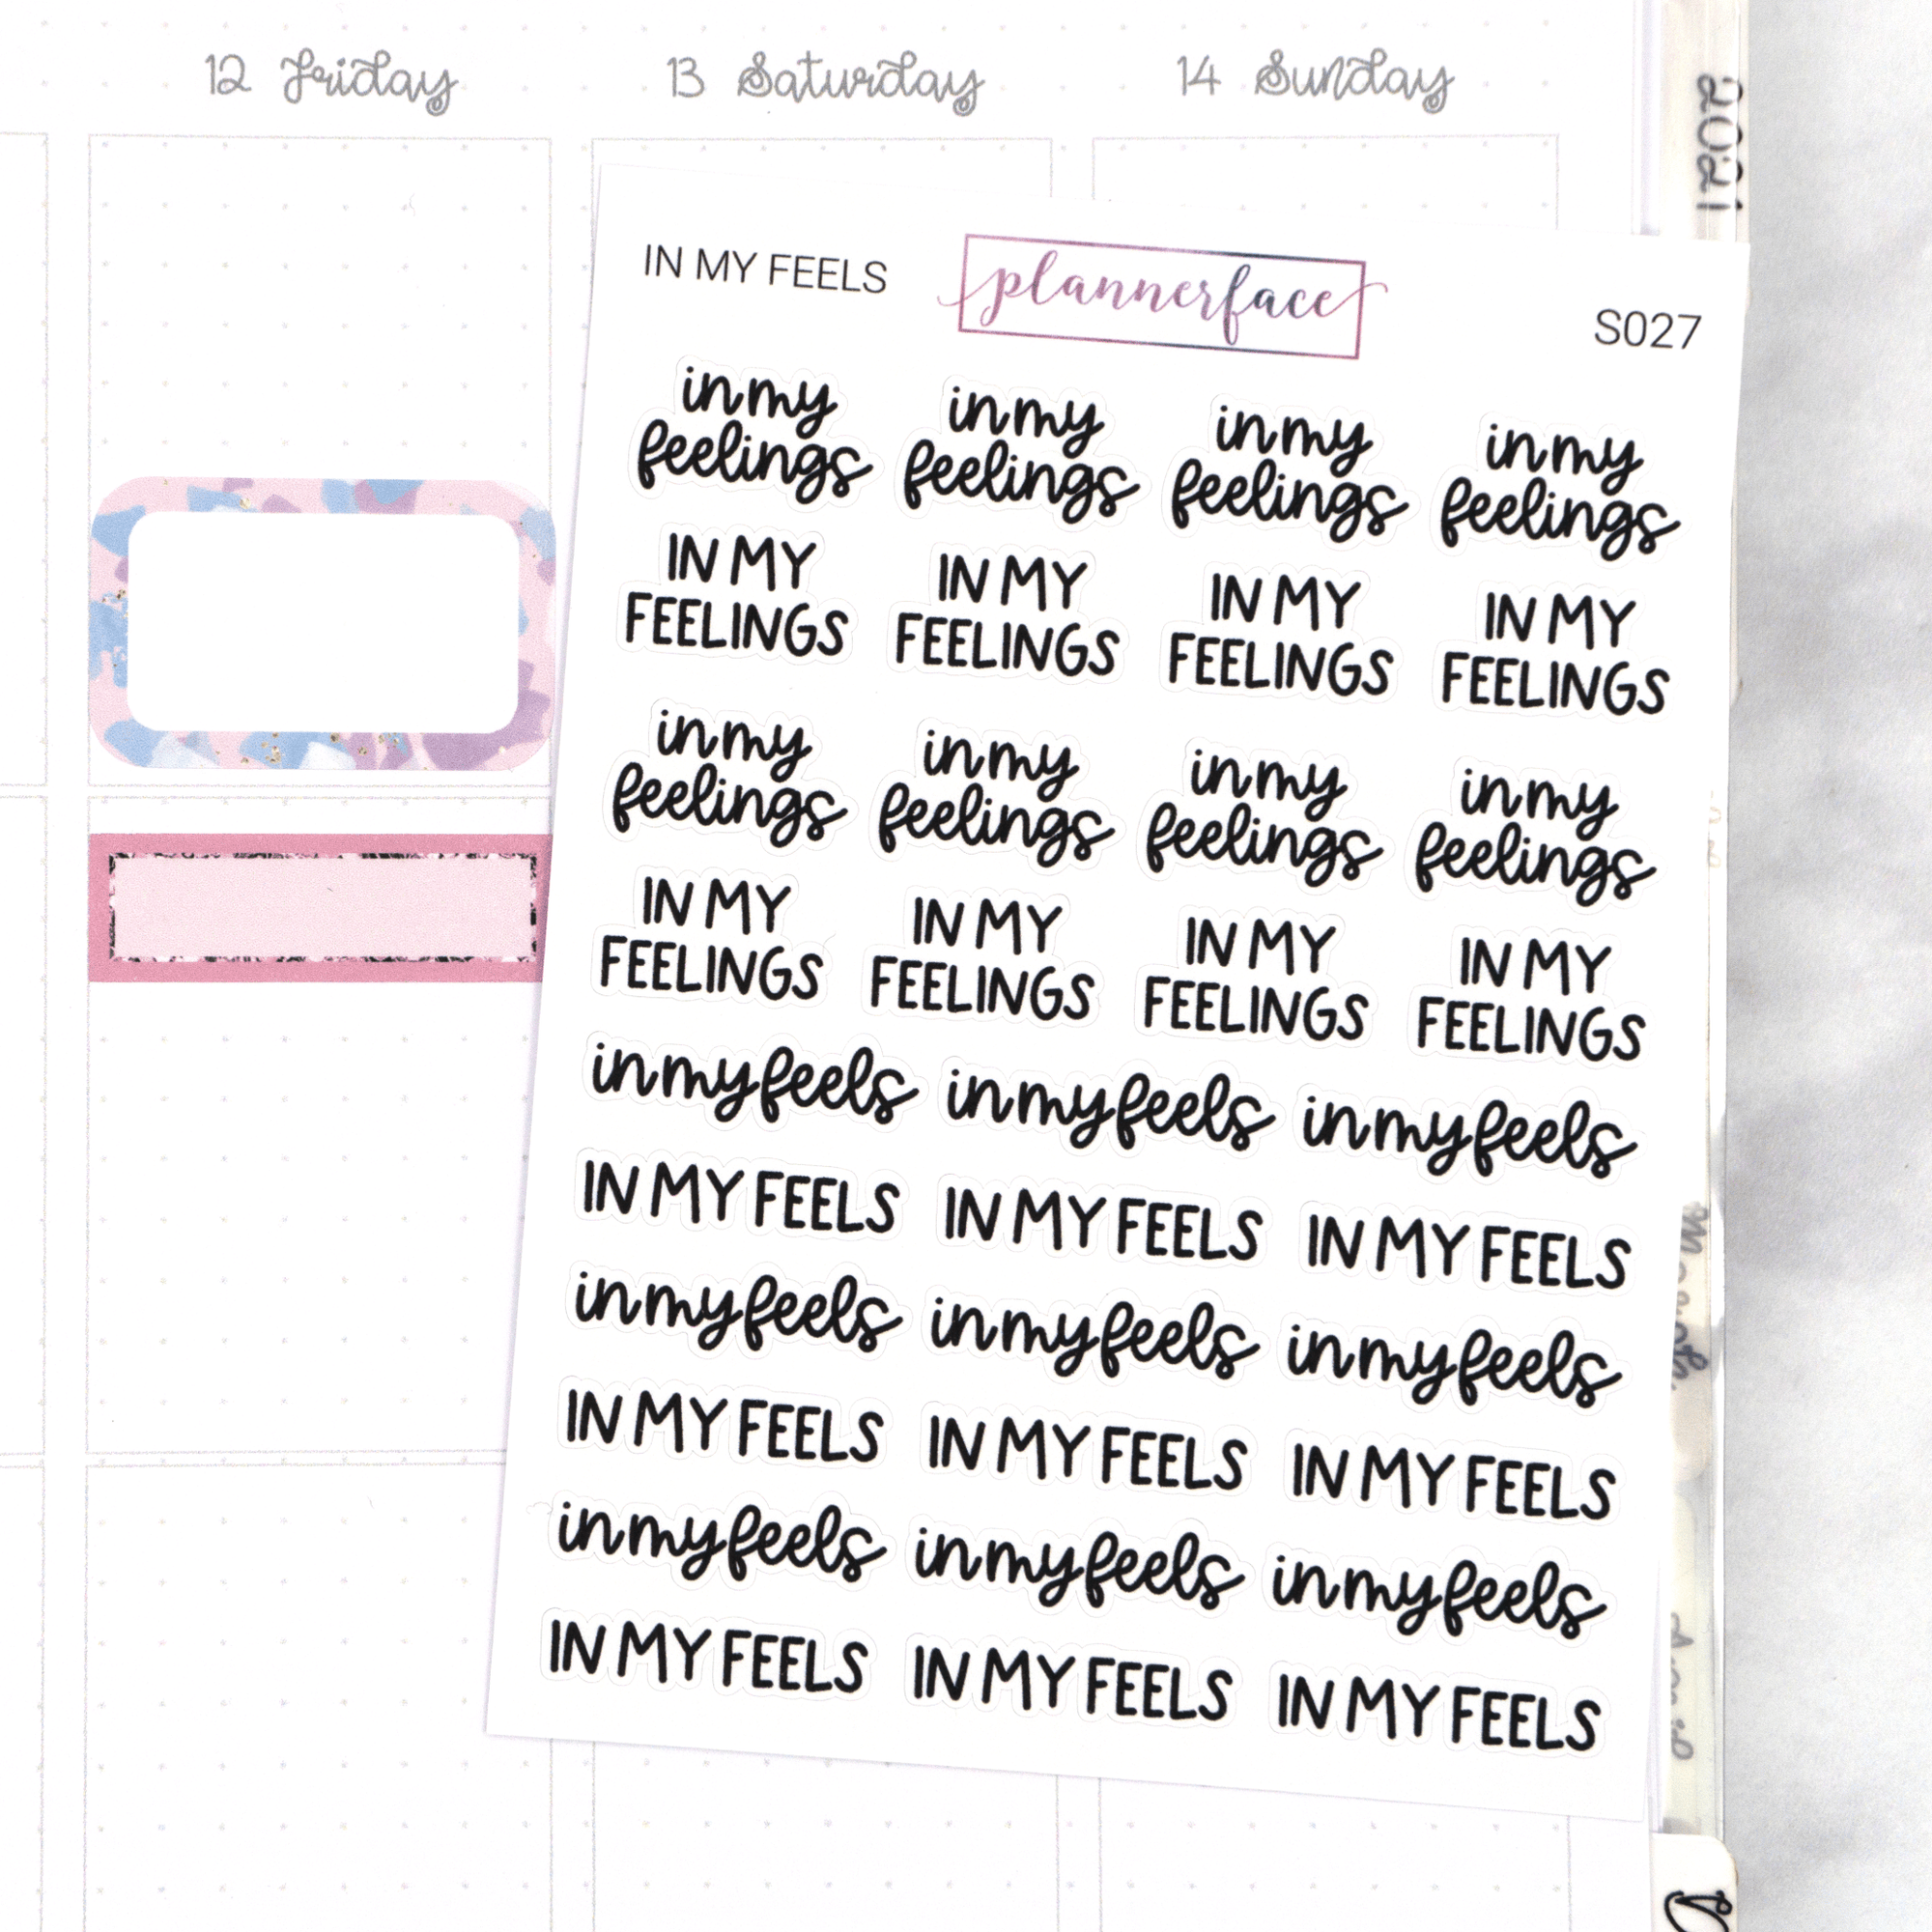 12 Friday 13 Saturday 14 Sunday
2021
IN MY FEELS plannerface S027
in my in my in my in my
feelings feelings feelings feelings
IN MY IN MY IN MY IN MY
FEELINGS FEELINGS FEELINGS FEELINGS
in my in my in my in my
feelings feelings feelings feelings
IN MY IN MY IN MY IN MY
FEELINGS FEELINGS FEELINGS FEELINGS
in my feels in my feels in my feels
IN MY FEELS IN MY FEELS IN MY FEELS
in my feels in my feels in my feels
IN MY FEELS IN MY FEELS IN MY FEELS
in my feels in my feels in my feels
IN MY FEELS IN MY FEELS IN MY FEELS